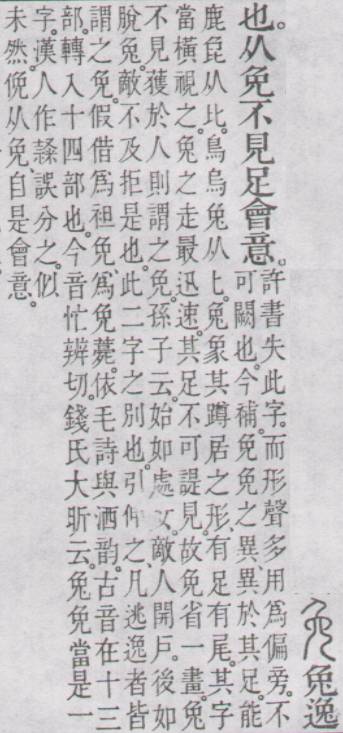 免逸
也。从免不見足會意。
許書失此字。而形聲多用爲偏旁。不
可闕也。今補。免兔之異、異於其足。能
鹿㲋从比。鳥烏兔从匕。兔象其蹲居之形、有足有尾。其字
當橫視之。兔之走最迅速。其足不可諟見。故免省一畫。兔
不見獲於人則謂之免。孫子云。始如處女。敵人開戶。後如
脫兔。敵不及拒是也。此二字之別也。引伸之、凡逃逸者皆
謂之免。假借爲袒免、爲免薨。依毛詩與洒韵。古音在十三
部。轉入十四部也。今音忙辨切。錢氏大昕云。兔免當是一
字。漢人作隸誤分之。似
未然。俛从免、自是會意。